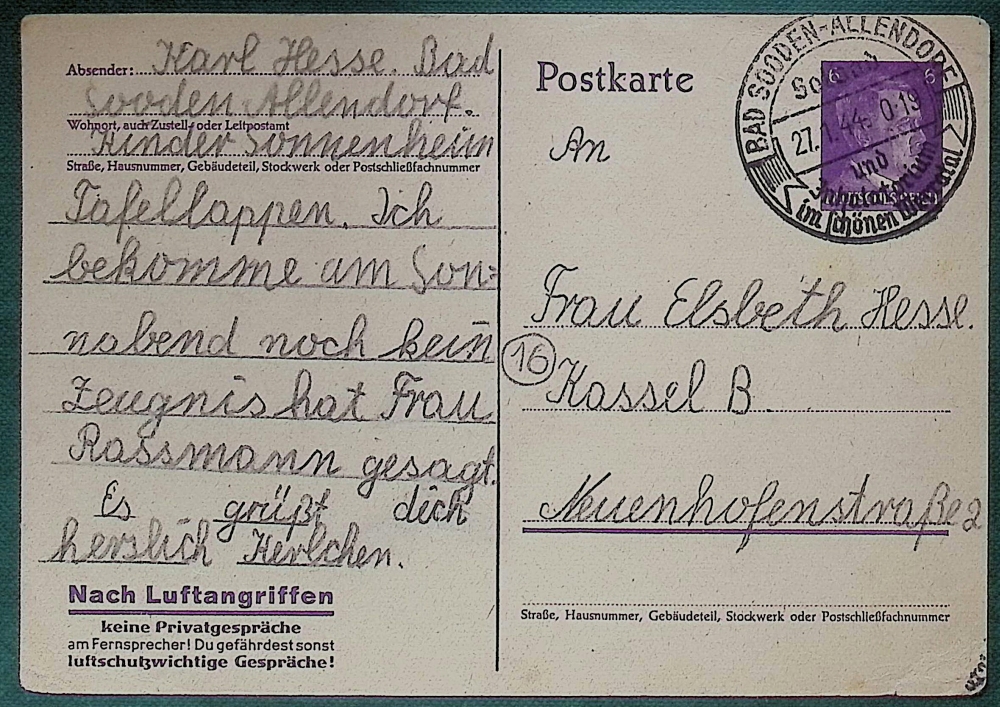 Absender: Karl Hesse. Bad
Sooden Allendorf.
Wohnort, auch Zustell- oder Leitpostamt
Kinder Sonnenheim
Straße, Hausnummer, Gebäudeteil, Stockwerk oder Postschließfachnummer
Tafellappen. Ich
bekomme am Son=
nabend noch kein
Zeugnis hat Frau
Rassmann gesagt.
Es grüßt dich
herzlich Kerlchen.
Nach Luftangriffen
keine Privatgespräche
am Fernsprecher! Du gefährdest sonst
luftschutzwichtige Gespräche!
Postkarte
An
Frau Elsbeth Hesse.
16
Kassel B.
Neuenhofenstraße 2
Straße, Hausnummer, Gebäudeteil, Stockwerk oder Postschließfachnummer
BAD SOODEN-ALLENDORF
27.1.44. 0-19
und
Inhalatorium
im schönen Werratal
6 6